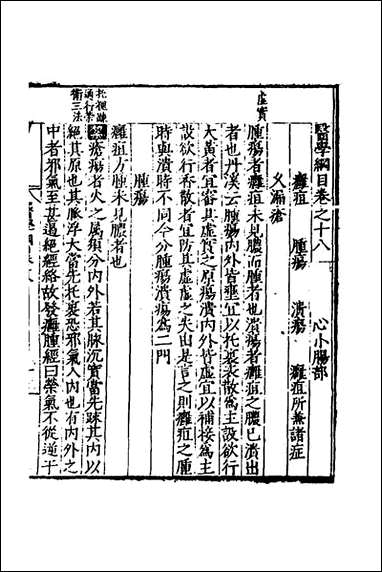 醫學綱目卷之十八　心小腸部
癰疽　腫瘍　潰瘍　癰疽所兼諸症
久漏瘡
虛實
腫瘍者癰疽未見膿而腫者也潰瘍者癰疽之膿已潰出
者也丹溪云腫瘍內外皆壅宜以托裏表散為主設欲行
大黃者宜審其虛實之原瘍潰內外皆虛宜以補接為主
設欲行香散者宜防其虛虛之失由是言之則癰疽之腫
時與潰時不同今分腫瘍潰瘍為二門
腫瘍
癰疽方腫未見膿者也
托裏疎
通行榮
衛三法
瘡瘍者火之屬須分內外若其脉沉實當先疎其內以
絕其原也其脉浮大當先托裏恐邪氣入內也有內外之
中者邪氣至甚遏絕經絡故發癰腫經曰榮氣不從逆于